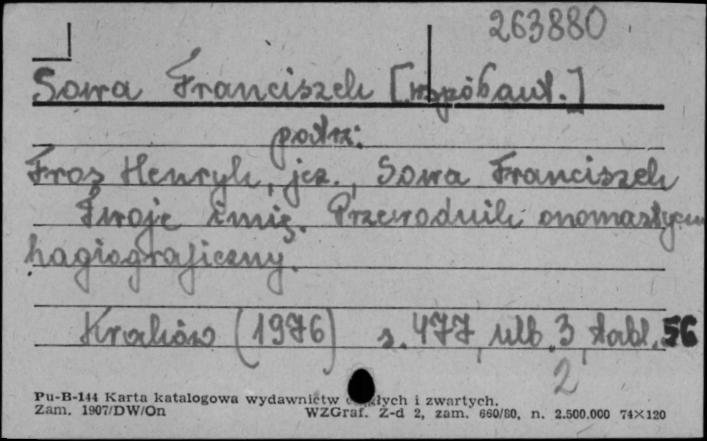 263880
Sowa Franciszek [współaut.]
patrz:
Fros Henryk, jez., Sowa Franciszek
Twoje imię. Przewodnik onomastyczn
hagiograficzny.
Kraków (1976) s. 477, ulb. 3, tabl. 56
2
Pu-B-144 Karta katalogowa wydawnictw ciągłych i zwartych.
Zam. 1907/DW/On WZGraf. Z-d 2, zam. 660/80, n. 2.500.000 74×120